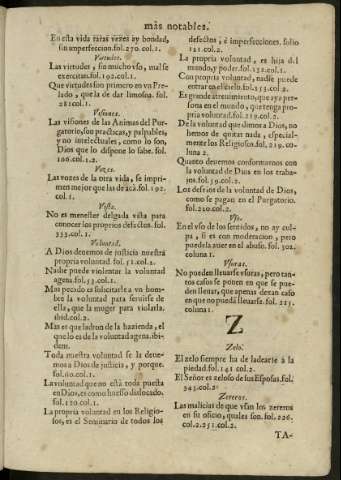 más notables.
En esta vida raras vezes ay bondad,
sin imperfeccion. fol. 270. col. 1.
Virtudes.
Las virtudes, sin mucho vso, mal se
exercitan. fol. 192. col. 1.
Que virtudes son primero en vn Prelado,
que la de dar limosna. fol.
281. col. 1.
Visiones.
Las visiones de las Animas del Purgatorio,
son practicas, y palpables,
y no intelectuales, como lo son,
Dios que lo dispone lo sabe. fol.
106. col. 1. 2.
Vozes.
Las vozes de la otra vida, se imprimen
mejor que las de acá. fol. 192.
col. 1.
Vista.
No es menester delgada vista para
conocer los proprios defectos. fol.
333. col. 1.
Voluntad.
A Dios deuemos de justicia nuestra
propria voluntad. fol. 51. col. 1.
Nadie puede violentar la voluntad
agena. fol. 53. col. 1.
Mas pecado es solicitarle a vn hombre
la voluntad para seruirse de
ella, que la muger para violarla.
ibid. col. 2.
Mas es que ladron de la hazienda, el
que lo es de la voluntad agena. ibidem.
Toda nuestra voluntad se la deuemos
a Dios de justicia, y porque.
fol. 60. col. 1.
La voluntad que no està toda puesta
en Dios, es como huesso dislocado.
fol. 120. col. 1.
La propria voluntad en los Religiosos,
es el Seminario de todos los
defectos, è imperfecciones. folio
121. col. 2.
La propria voluntad, es hija del
mundo, y poder. fol. 131. col. 1.
Con propria voluntad, nadie puede
entrar en el cielo. fol. 153. col. 2.
Es grande atreuimiento, que aya persona
en el mundo, que tenga propria
voluntad. fol. 219. col. 2.
De la voluntad que dimos a Dios, no
hemos de quitar nada, especialmente
los Religiosos. fol. 219. coluna
2.
Quanto deuemos conformarnos con
la voluntad de Dios en los trabajos.
fol. 59. col. 2.
Los desseos de la voluntad de Dios,
como se pagan en el Purgatorio.
fol. 210. col. 2.
Vso.
En el vso de los sentidos, no ay culpa,
si es con moderacion, pero
puedela auer en el abuso. fol. 302.
coluna 1.
Vsuras.
No pueden lleuarse vsuras, pero tantos
casos se ponen en que se pueden
lleuar, que apenas dexan caso
en que no puedã lleuarse. fol. 215.
coluna 1.
Z
Zelo.
El zelo siempre ha de ladearse à la
piedad. fol. 141. col. 2.
El Señor es zeloso de sus Esposas. fol.
345. col. 2.
Zereros.
Las malicias de que vsan los zereros
en su oficio, quales son. fol. 226.
col. 2. 251. col. 2.
TA-